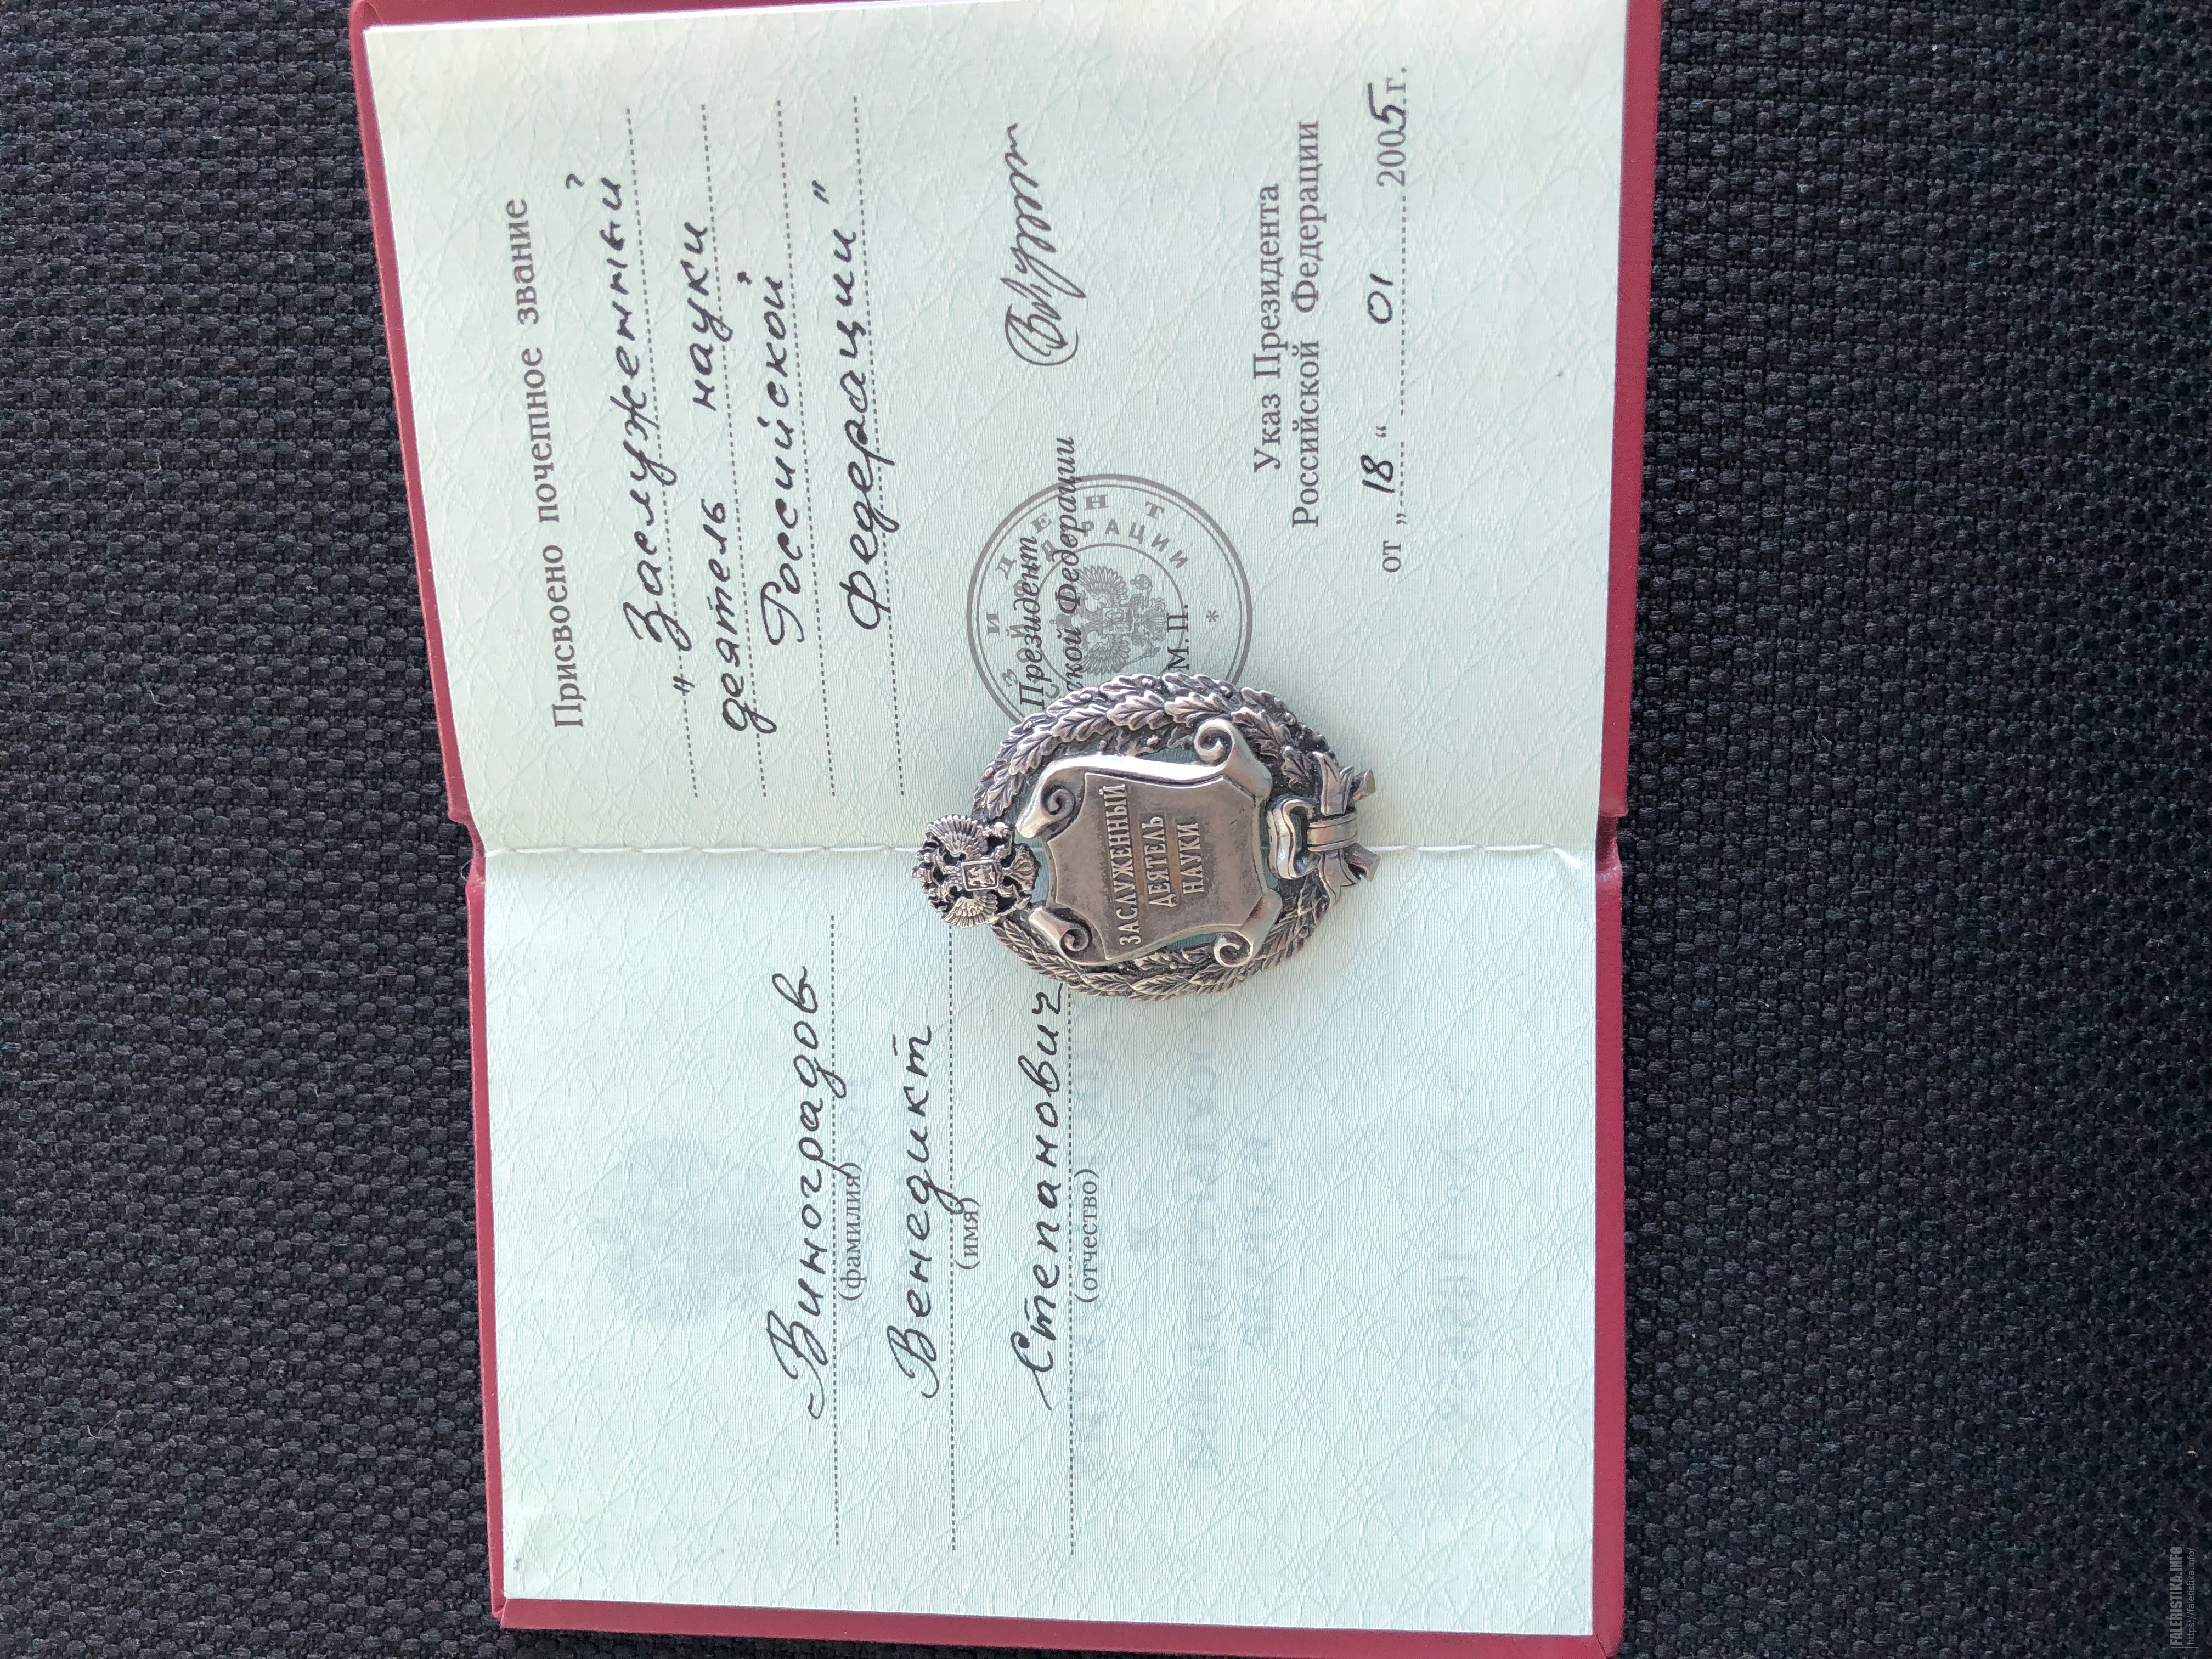 Виноградов
(фамилия)
Венедикт
(имя)
Степанович
(отчество)
Присвоено почетное звание
"Заслуженный
деятель науки
Российской
Федерации"
Президент
ской Федерации
М.П.
Указ Президента
Российской Федерации
от „18“ 01 2005 г.
ЗАСЛУЖЕННЫЙ
ДЕЯТЕЛЬ
НАУКИ
FALERISTIKA.INFO
https://faleristika.info/